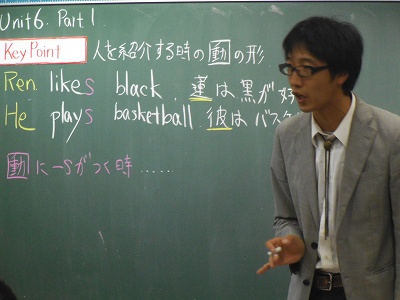 Unit 6. Part 1.
Key Point 人を紹介する時の動の形
Ren likes black. 蓮は黒が好
He plays basketball. 录はバスケ
動に-sがつく時……